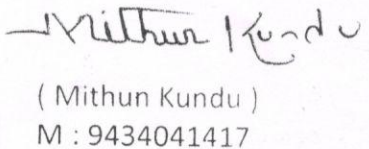 Mithun Kundu
( Mithun Kundu )
M : 9434041417